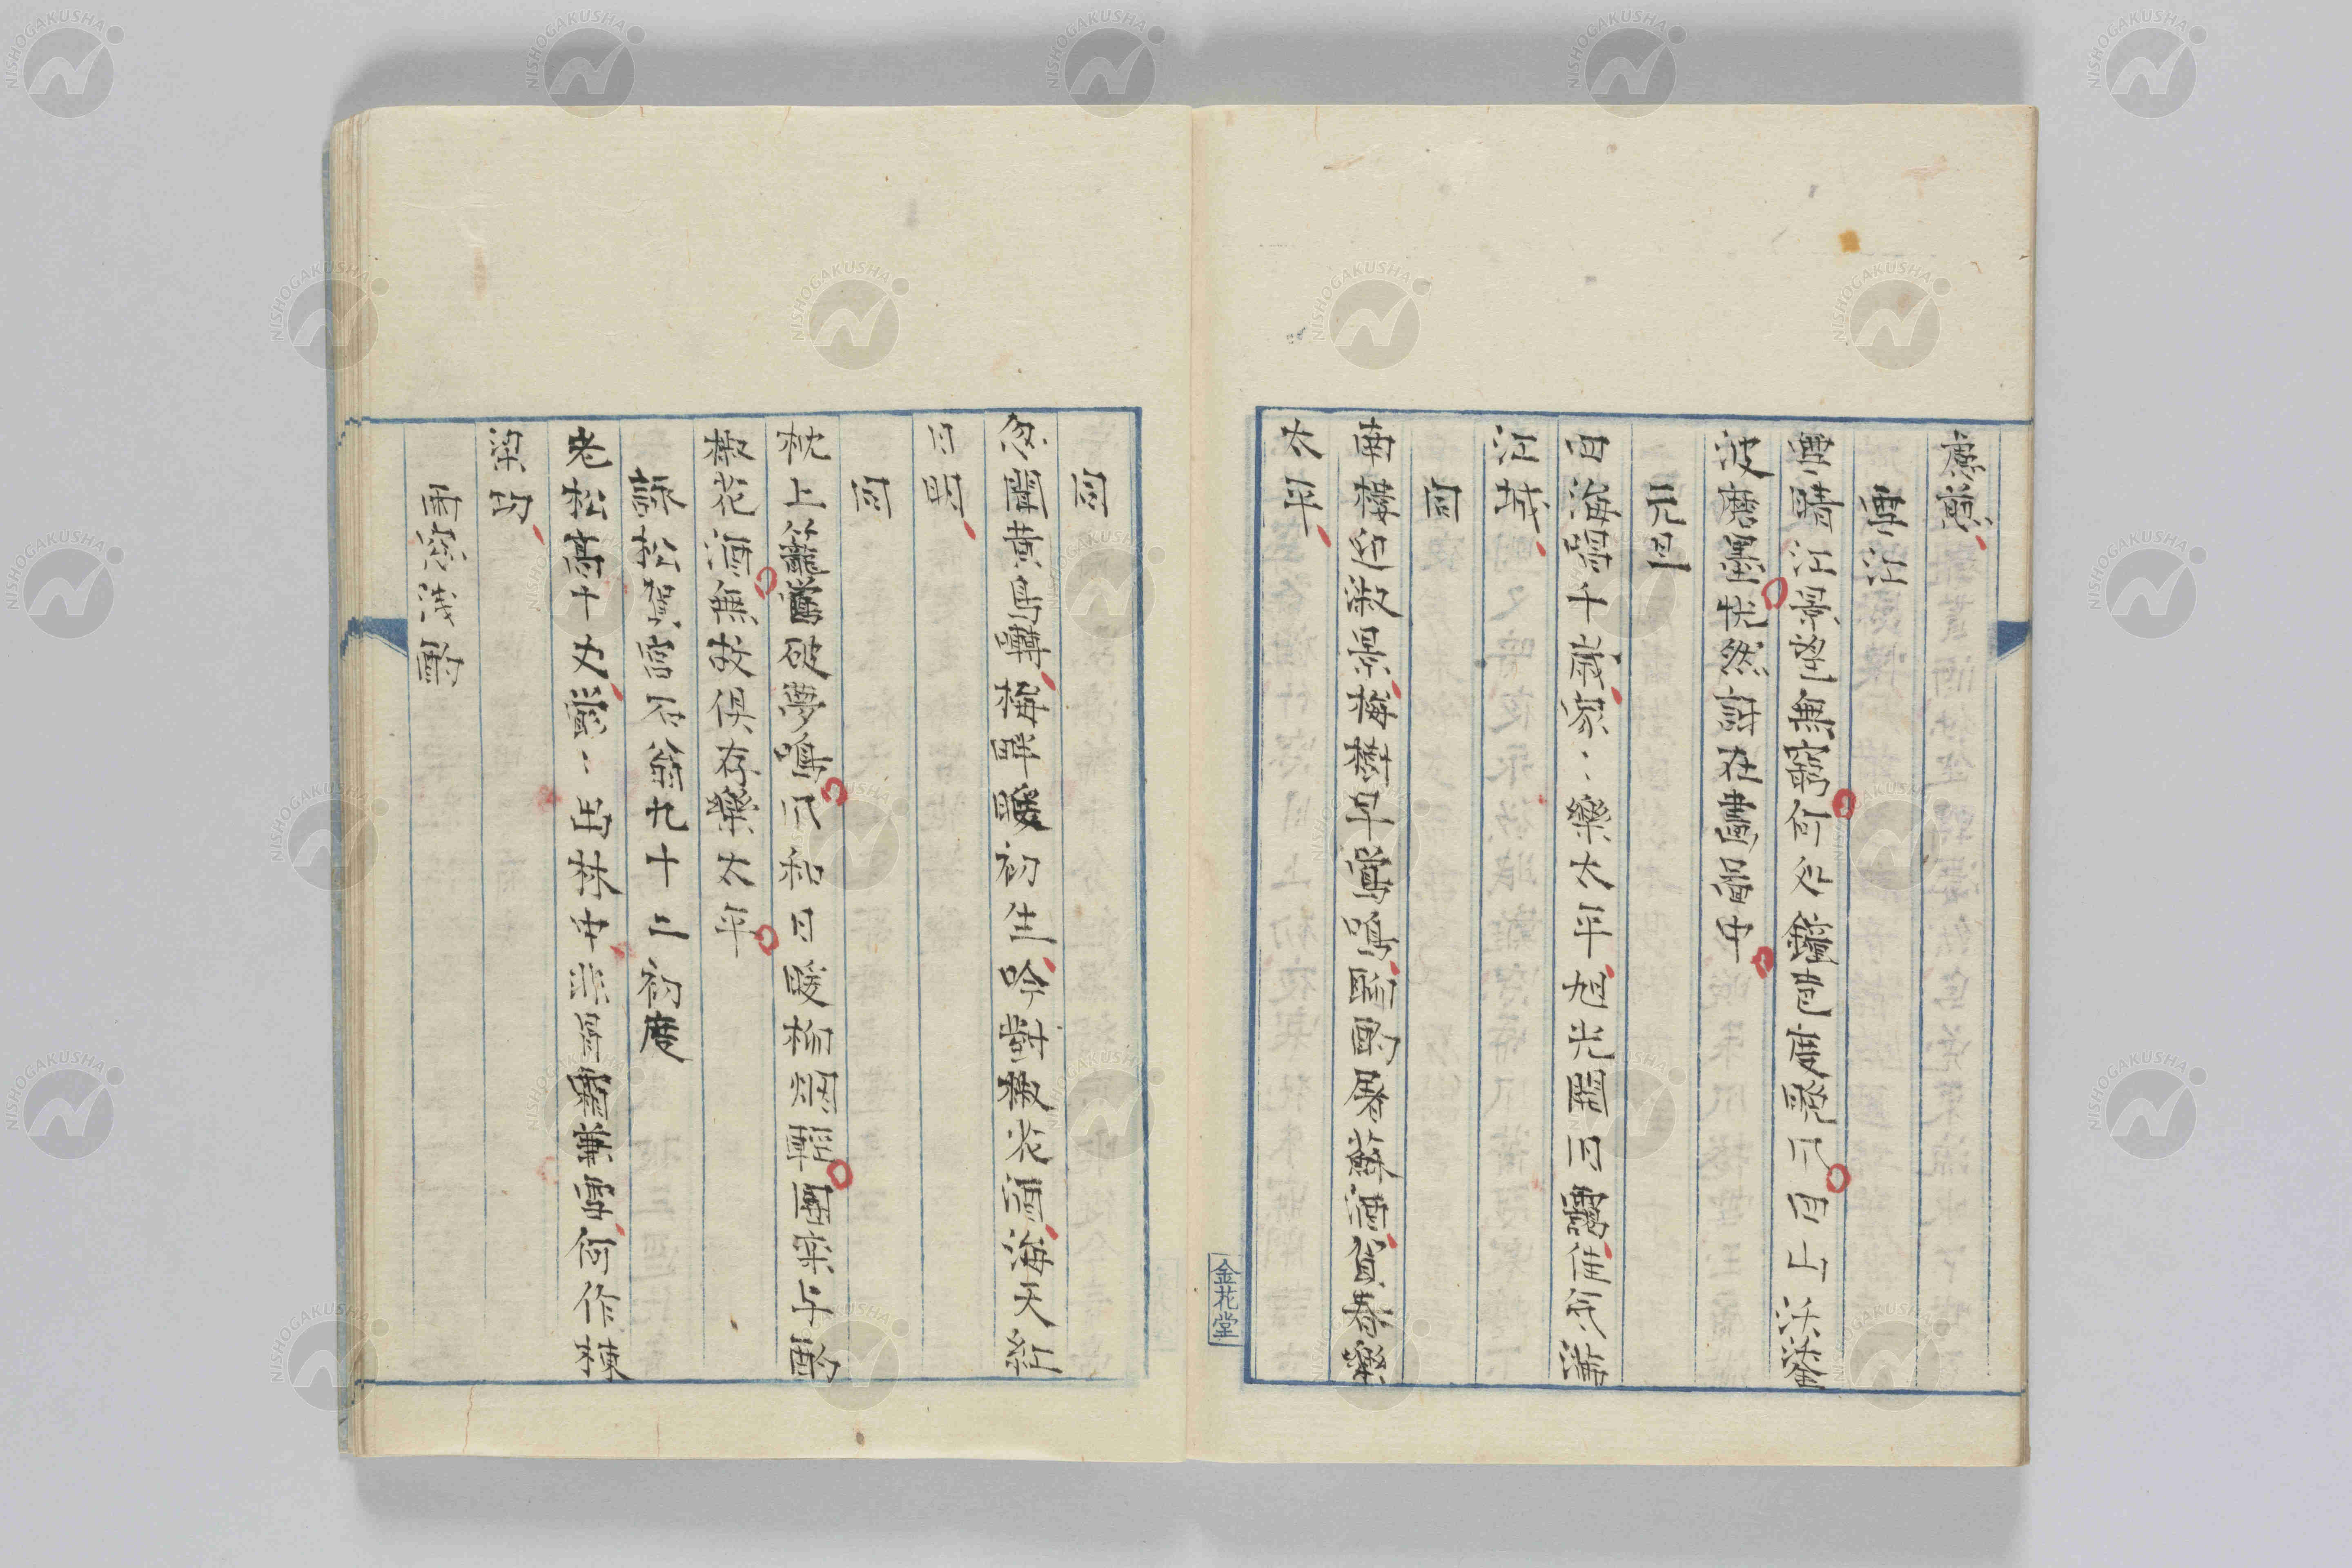 雪江
雪晴江景望無窮何処鐘声度晩風白山沃淦
波磨墨恍然詩在畫圖中
元旦
田海陽十歳家〻樂太平旭光開日靄佳氣満
江城
同
南棲迎淑景梅樹早鶯鳴酌屠蘇酒賀春樂
太平
同
忽聞黄鳥囀梅畔暖初生吟對椒花酒海天紅
日明
同
枕上籠鶯破夢鳴風和日暖柳烟軽團欒与酌
椒花酒無故俱存樂太平
詠松賀雪石翁九十二初度
老松高十丈鬱〻出林中非是霜兼雪何作棟
梁功
雨窓浅酌
金花堂
NISHOGAKUSHA